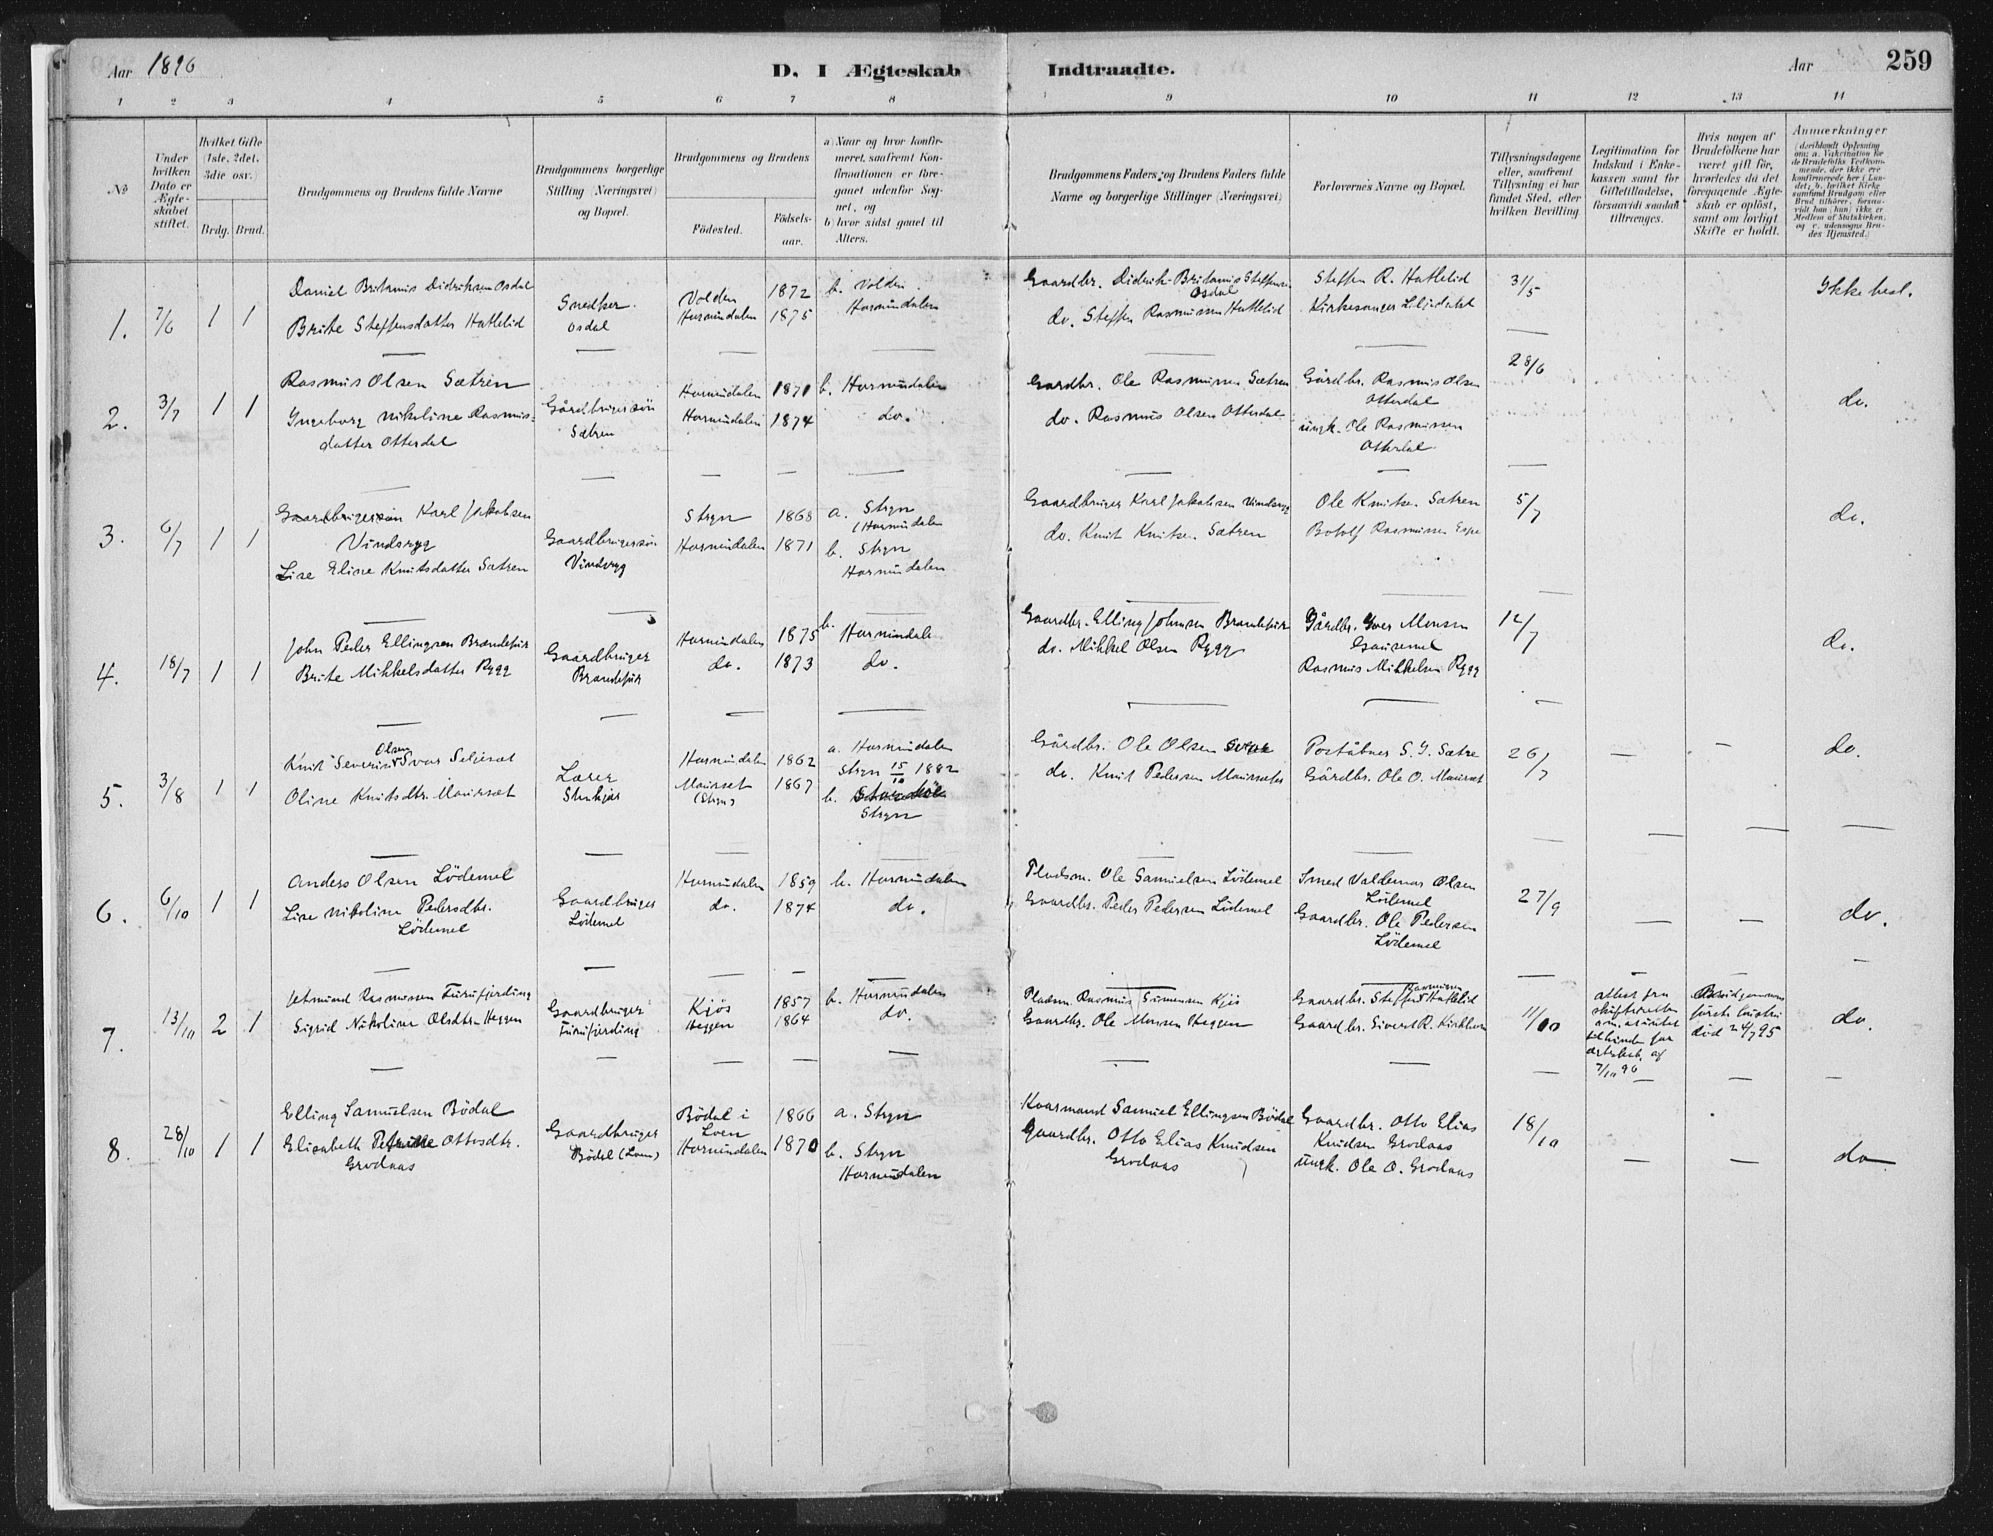 Aar 1896
D. I Ægteskab Indtraadte.
Aar
259
1 2 3 4 5 6 7 8 9 10 11 12 13 14
No
Under hvilken Dato er Ægteskabet stiftet.
Hvilket Gifte (1ste, 2det, 3die osv.)
Brdg. Brud.
Brudgommens og Brudens fulde Navne
Brudgommens borgerlige Stilling (Næringsvei) og Bopæl.
Brudgommens og Brudens
Fødested.
Fødsels-aar.
a) Naar og hvor konfirmeret, saafremt Konfirmationen er foregaaet udenfor Sognet, og
b) hvor sidst gaaet til Alters.
Brudgommens Faders og Brudens Faders fulde Navne og borgerlige Stillinger (Næringsvei)
Forlovernes Navne og Bopæl.
Tillysningsdagene eller, saafremt Tillysning ei har fundet Sted, efter hvilken Bevilling
Legitimation for Indskud i Enkekassen samt for Giftetilladelse, forsaavidt saadan tiltrænges.
Hvis nogen af Brudefolkene har været gift før, hvorledes da det foregaaende Ægteskab er opløst, samt om lovligt Skifte er holdt.
Anmærkninger (deriblandt Oplysning om: a. Vakcination for de Brudefolks Vedkommende, der ikke ere konfirmerede her i Landet; b. hvilket Kirkesamfund Brudgom eller Brud tilhører, forsaavidt han (hun) ikke er Medlem af Statskirken, og c. udensogns Brudes Hjemsted.)
1. 7/6 1 1
Daniel Britanus Didriksen Osdal
Brite Steffensdatter Hattelid
Snedker
Osdal
Volden 1872
Hornindalen 1875
b. Volden
Hornindalen
Gaardbr. Didrik Britanus Steffensen Osdal
do. Steffen Rasmussen Hattelid
Steffen R. Hattelid
Kirkesanger Liljedahl
31/5
Ikke besl.
2. 3/7 1 1
Rasmus Olsen Sætren
Ingeborg Nikoline Rasmus-
datter Otterdal
Gårdbrugersøn
Sætren
Hornindalen 1871
Hornindalen 1874
b. Hornindalen
do.
Gardbr. Ole Rasmussen Sætren
do. Rasmus Olsen Otterdal
Gårdbr. Rasmus Olsen
Otterdal
ungk. Ole Rasmussen
Otterdal
28/6
do.
3. 6/7 1 1
Gaardbrugersøn Karl Jakobsen
Vindsryg
Lise Eline Knutsdatter Sætren
Gaardbrugersøn
Vindsryg
Stryn 1868
Hornindalen 1871
a. Stryn
(Hornindalen
b. Stryn
Hornindalen
Gaardbruger Karl Jakobsen Vindsryg
do. Knut Knutsn. Sætren
Ole Knutsn. Sætren
Botolf Rasmussen Espe
5/7
do.
4. 18/7 1 1
John Peder Ellingsen Brændefur
Brite Mikkelsdatter Rygg
Gaardbruger
Brændefur
Hornindalen 1875
do. 1873
b. Hornindalen
do.
Gaardbr. Elling Johnsen Brændefur
do. Mikkel Olsen Rygg
Gårdbr. Iver Monsen
Gausemel
Rasmus Mikkelsen Rygg
12/7
do.
5. 3/8 1 1
Knut Severin Olsen Svor Seljeset
Oline Knutsdtr. Maurset
Lærer
Stenkjær
Hornindalen 1862
Maurset 1867
(Stryn)
a. Hornindalen
Stryn 15/10 1882
b.
Stryn
Gårdbr. Ole Olsen Svor
do. Knut Pedersen Maurset
Poståbner S. J. Sætre
Gårdbr. Ole O. Maurset
26/7
do.
6. 6/10 1 1
Anders Olsen Lødemel
Lise Nikoline Pedersdtr.
Lødemel
Gaardbruger
Lødemel
Hornindalen 1859
do. 1874
b. Hornindalen
do.
Pladsm. Ole Samuelsen Lødemel
Gaardbr. Peder Pedersen Lødemel
Smed Valdemar Olsen
Lødemel
Gaardbr. Ole Pedersen
Lødemel
27/9
do.
7. 13/10 2 1
Jetmund Rasmussen Furufjerding
Sigrid Nikoline Olsdtr. Heggen
Gaardbruger
Furufjerding
Kjøs 1857
Heggen 1864
b. Hornindalen
do.
Pladsm. Rasmus Simensen Kjøs
Gaardbr. Ole Monsen Heggen
Gaardbr. Steffen Rasmussen Hattelid
Gaardbr. Sivert R. Kirkhorn
11/10
attest fra
skifteretten
om intet
til hinder for
ægteskab, af
7/10 96
Brudgommens
første hustru
død 24/7 95
do.
8. 28/10 1 1
Elling Samuelsen Bødal
Elisabeth Petrine Ottosdtr.
Grodaas
Gaardbruger
Bødal (Loen)
Bødal i 1866
Loen
Hornindalen 1870
a. Stryn
b. Stryn
Hornindalen
Kaarmand Samuel Ellingsen Bødal
Gaardbr. Otto Elias Knudsen
Grodaas
Gaardbr. Otto Elias
Knudsen Grodaas
Ungk. Ole O. Grodaas
18/10
do